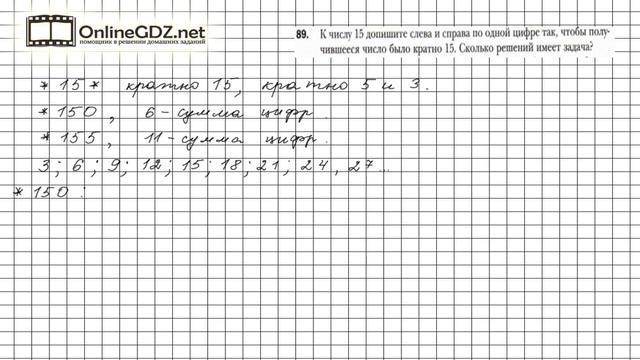 OnlineGDZ.net
помощник в решении домашних заданий
89. К числу 15 допишите слева и справа по одной цифре так, чтобы полу-
чившееся число было кратно 15. Сколько решений имеет задача?
* 15 * кратно 15, кратно 5 и 3.
* 150, 6 - сумма цифр.
* 155, 11 - сумма цифр.
3; 6; 9; 12; 15; 18; 21; 24, 27...
* 150 :